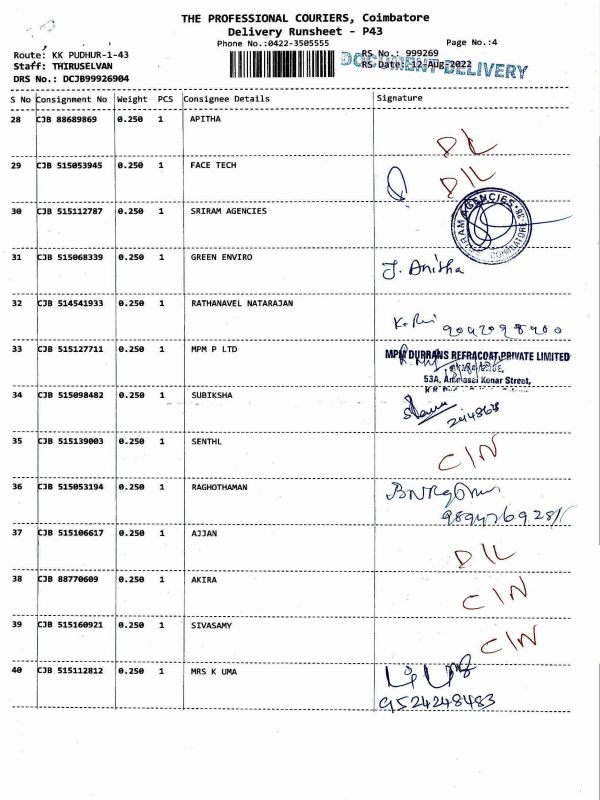 THE PROFESSIONAL COURIERS, Coimbatore
Delivery Runsheet - P43
Phone No.:0422-3505555
Page No.:4
Route: KK PUDHUR-1-43
RS No.: 999269
Staff: THIRUSELVAN
RS Date: 12-Aug-2022
DOCUMENT-DELIVERY
DRS No.: DCJB99926904
S No Consignment No Weight PCS Consignee Details Signature
28 CJB 88689869 0.250 1 APITHA
D/L
29 CJB 515053945 0.250 1 FACE TECH
D/L
30 CJB 515112787 0.250 1 SRIRAM AGENCIES
AGENCIES
31 CJB 515068339 0.250 1 GREEN ENVIRO
J. Anitha
32 CJB 514541933 0.250 1 RATHANAVEL NATARAJAN
33 CJB 515127711 0.250 1 MPM P LTD
MPM DURRANS REFRACOAT PRIVATE LIMITED
53A, Ammasai Konar Street,
34 CJB 515098482 0.250 1 SUBIKSHA
35 CJB 515139003 0.250 1 SENTHL
C/N
36 CJB 515053194 0.250 1 RAGHOTHAMAN
37 CJB 515106617 0.250 1 AJJAN
D/L
38 CJB 88770609 0.250 1 AKIRA
C/N
39 CJB 515160921 0.250 1 SIVASAMY
C/N
40 CJB 515112812 0.250 1 MRS K UMA
9524248483